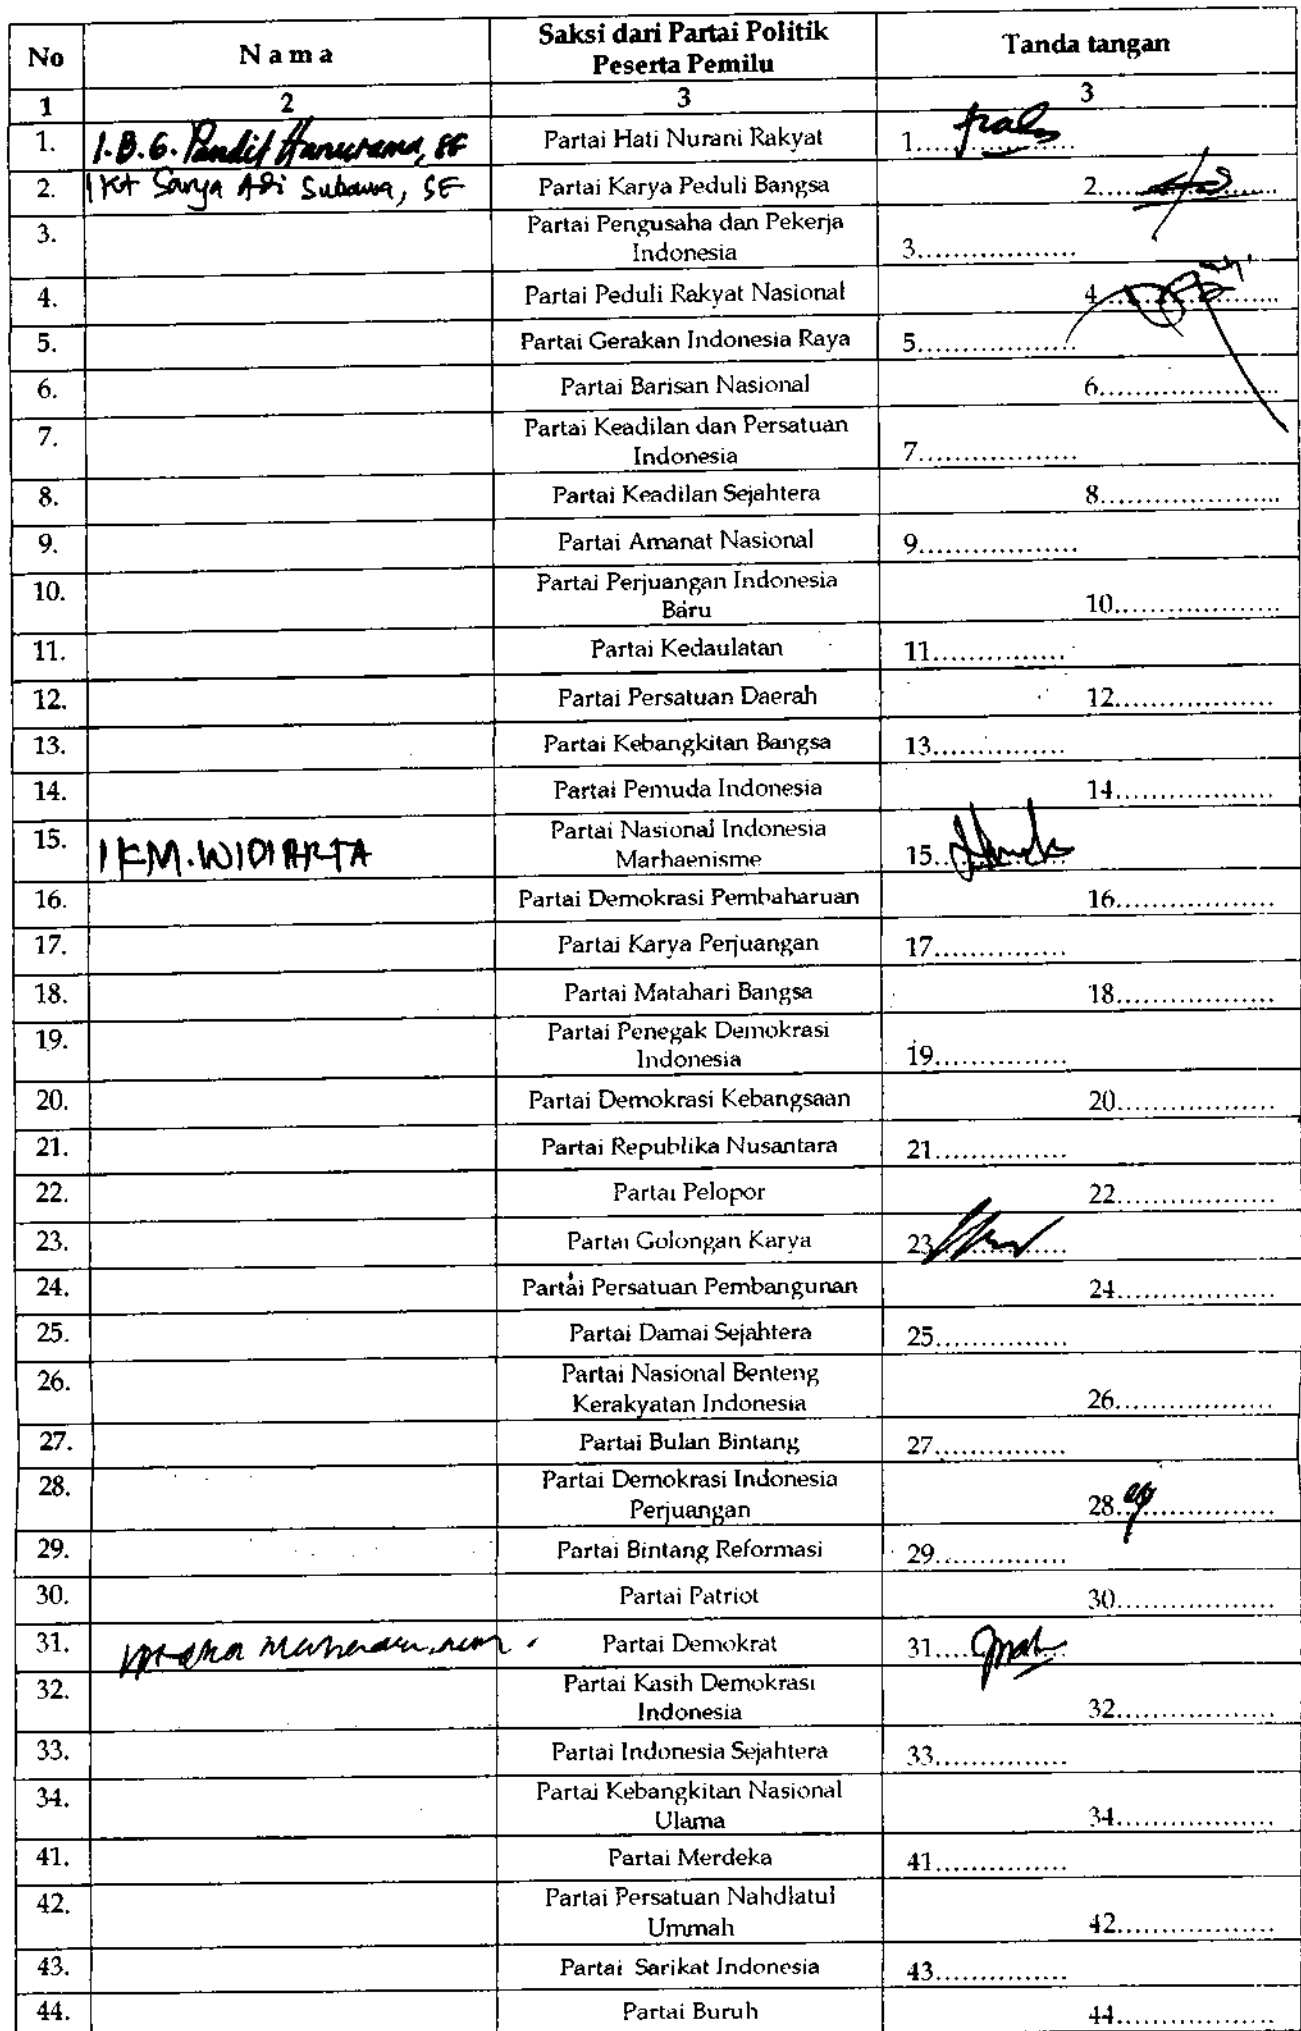 No N a m a Saksi dari Partai Politik Peserta Pemilu Tanda tangan
1 2 3 3
1. I.B.G. Pandit Partai Hati Nurani Rakyat 1...............
2. I Kt Surya Adi Subawa, SE Partai Karya Peduli Bangsa 2...............
3. Partai Pengusaha dan Pekerja Indonesia 3...............
4. Partai Peduli Rakyat Nasional 4...............
5. Partai Gerakan Indonesia Raya 5...............
6. Partai Barisan Nasional 6...............
7. Partai Keadilan dan Persatuan Indonesia 7...............
8. Partai Keadilan Sejahtera 8...............
9. Partai Amanat Nasional 9...............
10. Partai Perjuangan Indonesia Baru 10...............
11. Partai Kedaulatan 11...............
12. Partai Persatuan Daerah 12...............
13. Partai Kebangkitan Bangsa 13...............
14. Partai Pemuda Indonesia 14...............
15. I KM. WIDIARTA Partai Nasional Indonesia Marhaenisme 15...............
16. Partai Demokrasi Pembaharuan 16...............
17. Partai Karya Perjuangan 17...............
18. Partai Matahari Bangsa 18...............
19. Partai Penegak Demokrasi Indonesia 19...............
20. Partai Demokrasi Kebangsaan 20...............
21. Partai Republika Nusantara 21...............
22. Partai Pelopor 22...............
23. Partai Golongan Karya 23...............
24. Partai Persatuan Pembangunan 24...............
25. Partai Damai Sejahtera 25...............
26. Partai Nasional Benteng Kerakyatan Indonesia 26...............
27. Partai Bulan Bintang 27...............
28. Partai Demokrasi Indonesia Perjuangan 28...............
29. Partai Bintang Reformasi 29...............
30. Partai Patriot 30...............
31. Partai Demokrat 31...............
32. Partai Kasih Demokrasi Indonesia 32...............
33. Partai Indonesia Sejahtera 33...............
34. Partai Kebangkitan Nasional Ulama 34...............
41. Partai Merdeka 41...............
42. Partai Persatuan Nahdlatul Ummah 42...............
43. Partai Sarikat Indonesia 43...............
44. Partai Buruh 44...............